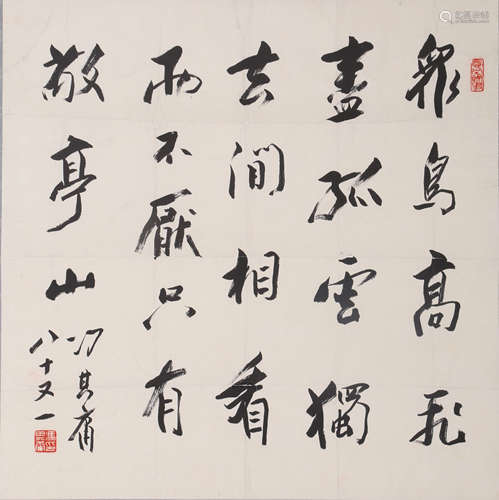 眾鳥高飛
盡孤雲獨
去閒相看
兩不厭只有
敬亭山
馮其庸
八十又一